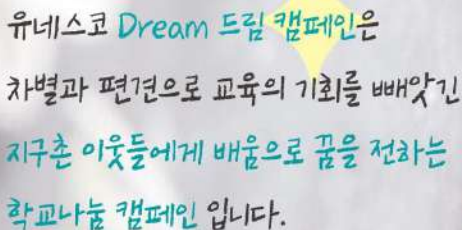 유네스코 Dream 드림 캠페인은
차별과 편견으로 교육의 기회를 빼앗긴
지구촌 이웃들에게 배움으로 꿈을 전하는
학교나눔 캠페인 입니다.